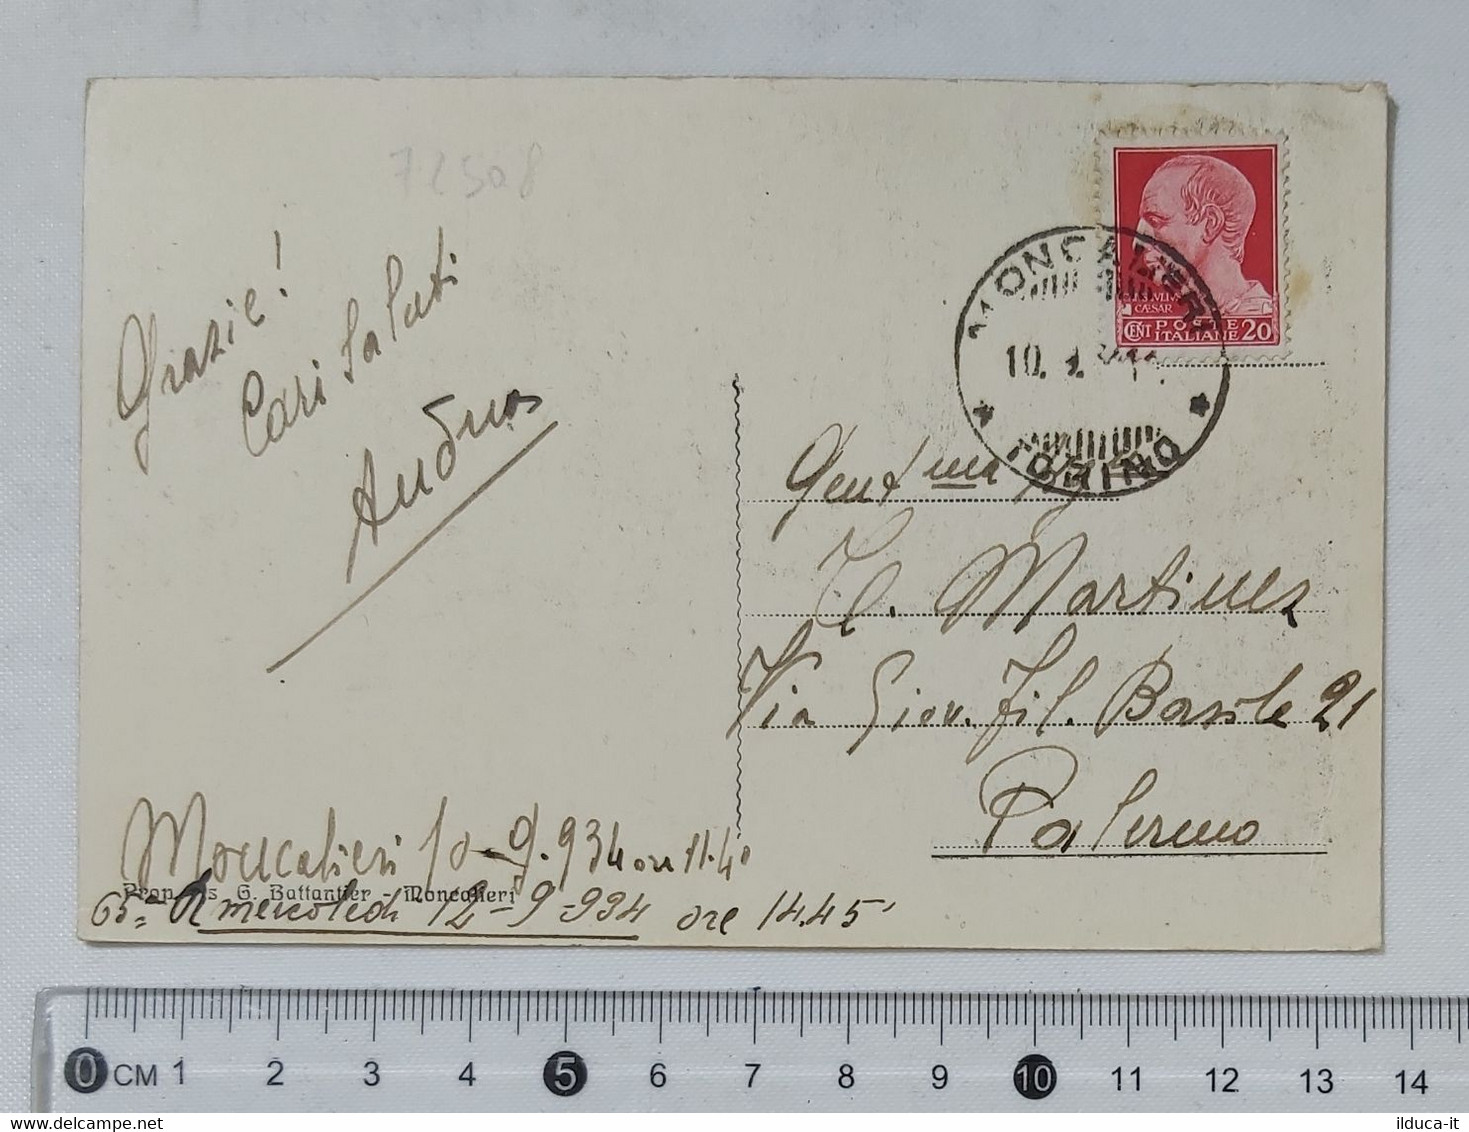 72508
Grazie!
Cari Saluti
MONCALIERI
10.
TORINO
IVLIVS
CAESAR
CENT POSTE ITALIANE 20
Gent ma
C. Martinez
Via Giov. Fil. Basile 21
Palermo
Moncalieri 10-9.934 ore 11.40
Prop. G. Battantier - Moncalieri
65a R mercoledi 12-9-934 ore 14.45'
0 CM 1 2 3 4 5 6 7 8 9 10 11 12 13 14
ilduca-it